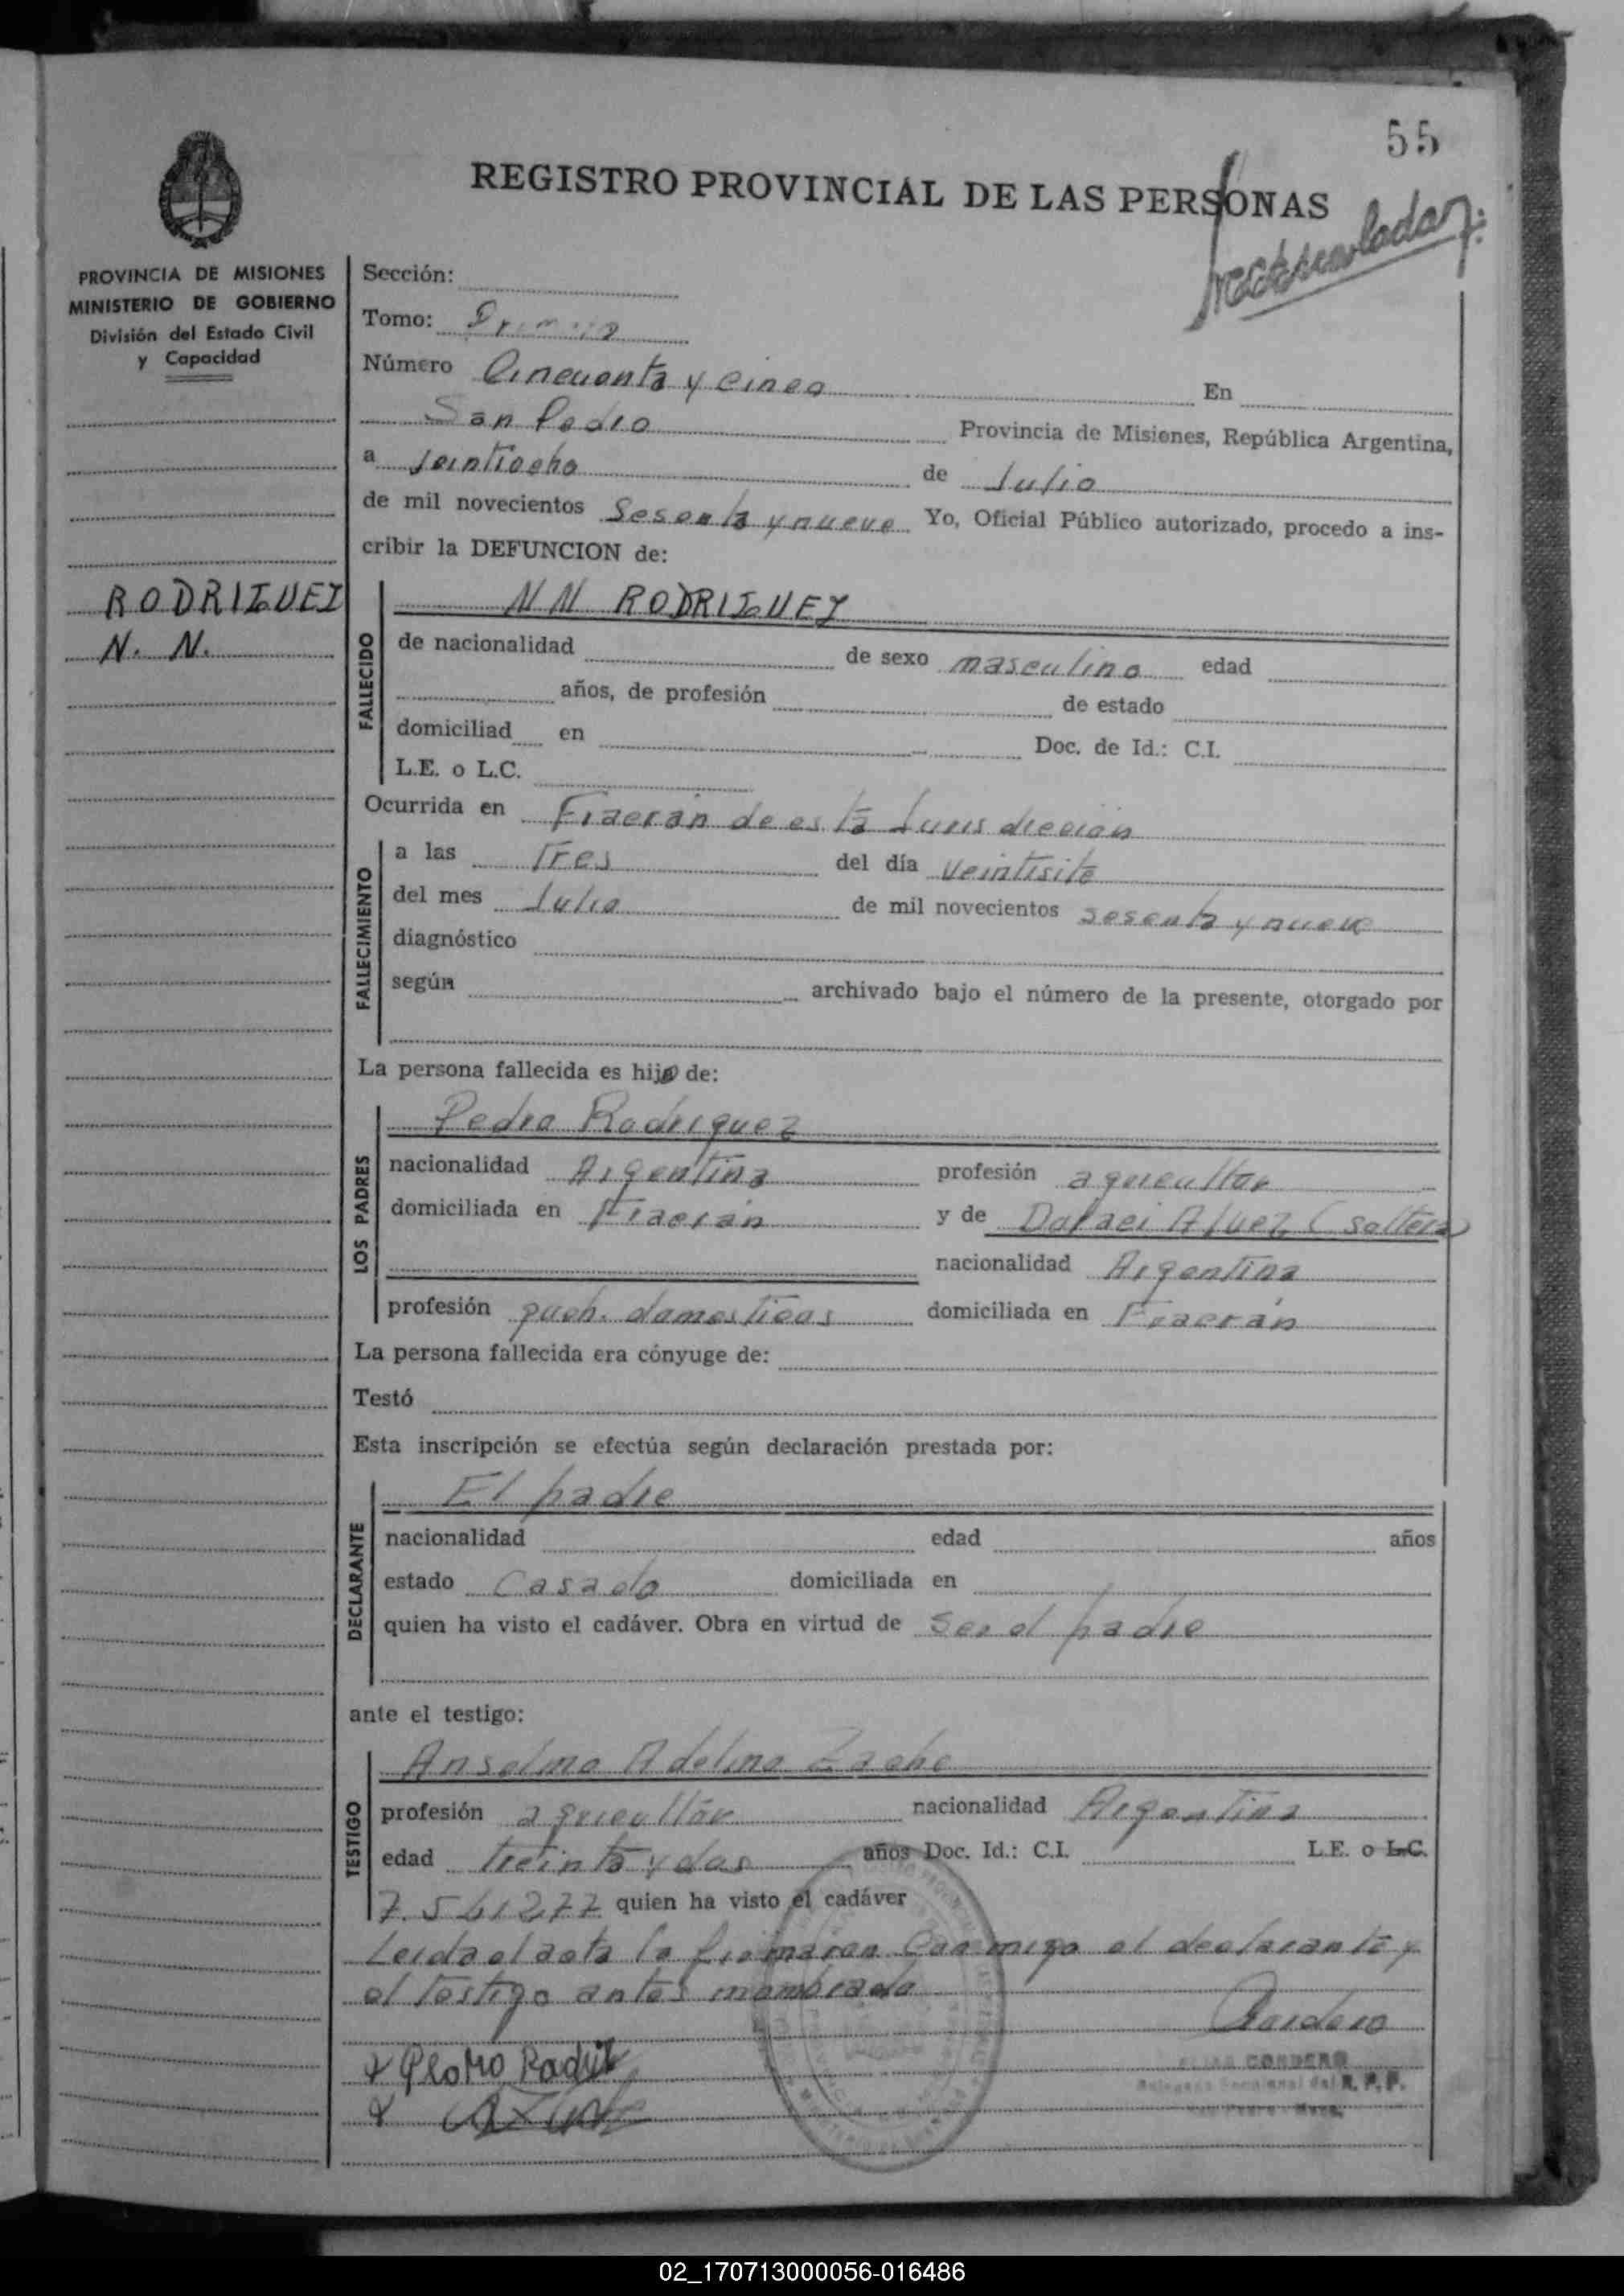 55
REGISTRO PROVINCIAL DE LAS PERSONAS
PROVINCIA DE MISIONES
MINISTERIO DE GOBIERNO
División del Estado Civil
y Capacidad
Sección:
Tomo: Primero
Número Cincuenta y cinco En
San Pedro Provincia de Misiones, República Argentina,
a veintiocho de Julio
de mil novecientos Sesenta y nueve Yo, Oficial Público autorizado, procedo a ins-
cribir la DEFUNCION de:
RODRIGUEZ
N. N.
FALLECIDO
NN RODRIGUEZ
de nacionalidad de sexo masculino edad
años, de profesión de estado
domiciliad en Doc. de Id.: C.I.
L.E. o L.C.
Ocurrida en Fracrán de esta Jurisdiccion
FALLECIMIENTO
a las Tres del día veintisite
del mes Julio de mil novecientos sesenta y nueve
diagnóstico
según archivado bajo el número de la presente, otorgado por
La persona fallecida es hijo de:
LOS PADRES
Pedro Rodriguez
nacionalidad Argentina profesión agricultor
domiciliada en Fracrán y de Alvez (soltera)
nacionalidad Argentina
profesión queh. domesticos domiciliada en Fracrán
La persona fallecida era cónyuge de:
Testó
Esta inscripción se efectúa según declaración prestada por:
DECLARANTE
El padre
nacionalidad edad años
estado Casado domiciliada en
quien ha visto el cadáver. Obra en virtud de ser el padre
ante el testigo:
TESTIGO
Anselmo Adelino Zache
profesión agricultor nacionalidad Argentina
edad treinta y dos años Doc. Id.: C.I. L.E. o L.C.
7.541277 quien ha visto el cadáver
Leida el acta la firmaron Conmigo el declarante y
el testigo antes mombrado
Cordero
Pedro
ELIAS CORDERO
Delegado Seccional del R. P. P.
San Pedro - Mnes.
02_170713000056-016486